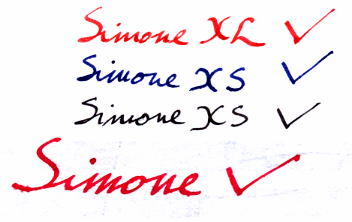 Simone XL ✓
Simone XS ✓
Simone XS ✓
Simone ✓